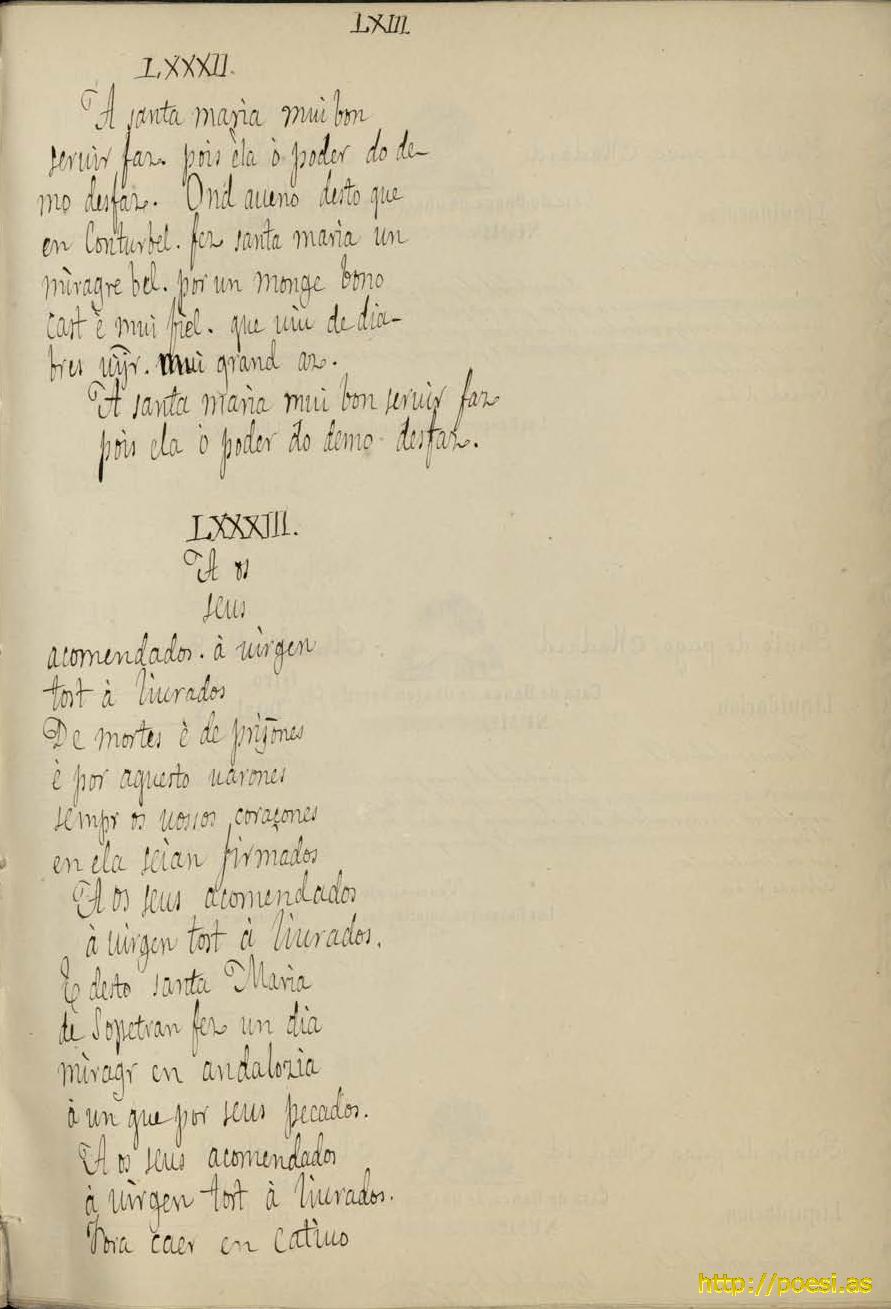 LXIII.
LXXXII.
A santa maria mui bon
seruir faz. pois ela o poder do de-
mo desfaz. Ond aueno desto que
en Conturbel. fez santa maria un
miragre bel. por un monge bono
cast è mui fiel. que uiu de dia-
bres uĩjr. mui grand az.
A santa maria mui bon seruir faz
pois ela o poder do demo desfaz.
LXXXIII.
A os
seus
acomendados. à uirgen
tost à liurados
De mortes è de prijões
è por aquesto uarones
sempr os uossos coraçones
en ela seian firmados
A os seus acomendados
à uirgen tost à liurados.
E desto santa Maria
de Sopetran fez un dia
miragr en andalozia
à un que por seus pecados.
A os seus acomendados
à uirgen tost à liurados.
Fora caer en catiuo
http://poesi.as